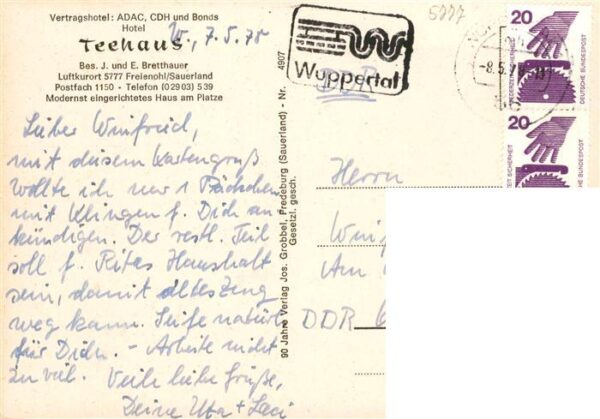 Vertragshotel: ADAC, CDH und Bonds
Hotel
Teehaus
Bes. J. und E. Bretthauer
Luftkurort 5777 Freienohl/Sauerland
Postfach 1150 • Telefon (02903) 539
Modernst eingerichtetes Haus am Platze
W., 7.5.78
Lieber Winfried,
mit diesem Kartengruß
wollte ich nur 1 Päckchen
mit Klingen f. Dich an
kündigen. Der restl. Teil
soll f. Ritas Haushalt
sein, damit altes Zeug
weg kann. Seife natürl.
für Dich. – Arbeite nicht
zu viel. Viele liebe Grüße,
Deine Uta +
90 Jahre Verlag Jos. Grobbel, Fredeburg (Sauerland) - Nr. 4907
Gesetzl. gesch.
Wuppertal
5777
DDR
-8.5.78
20
JEDERZEIT SICHERHEIT
DEUTSCHE BUNDESPOST
20
ZEIT SICHERHEIT
DEUTSCHE BUNDESPOST
Herrn
Win
Am
DDR